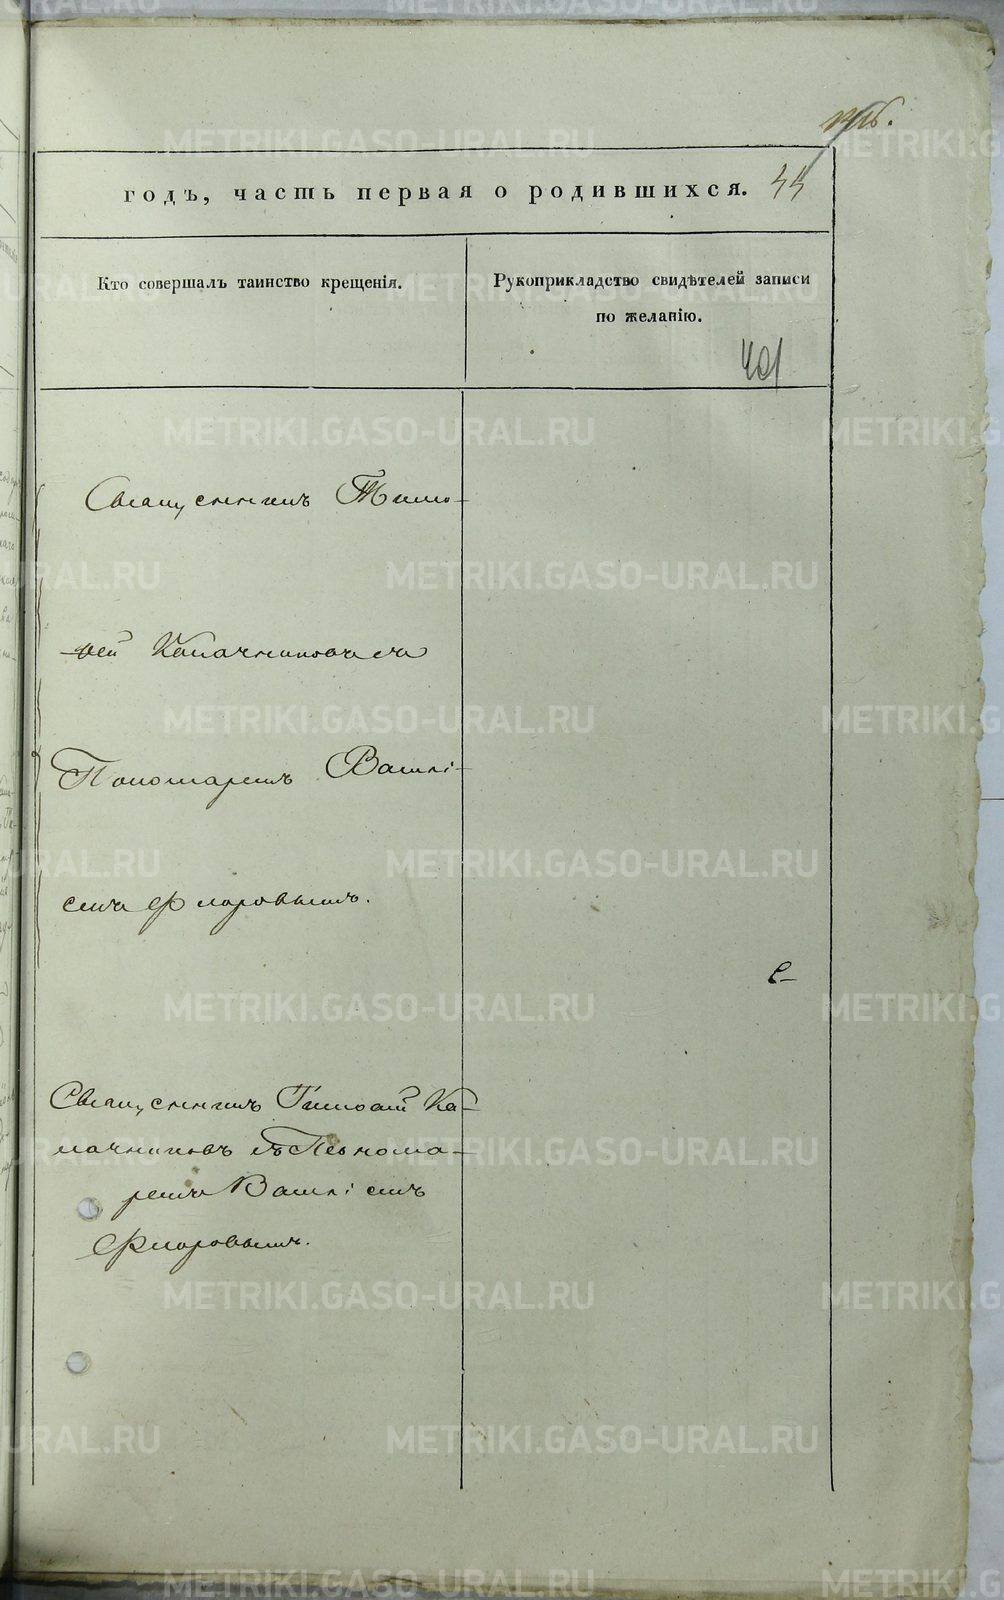 44
годъ, часть первая о родившихся.
Кто совершалъ таинство крещенія.
Рукоприкладство свидѣтелей записи
по желанію.
401
Священникъ Тимо-
фей Калачниковъ съ
Пономаремъ Васиі-
емъ Флоровымъ.
Священникъ Тимофей Ка-
лачниковъ съ Понома-
ремъ Василіемъ
Флоровымъ.
METRIKI.GASO-URAL.RU